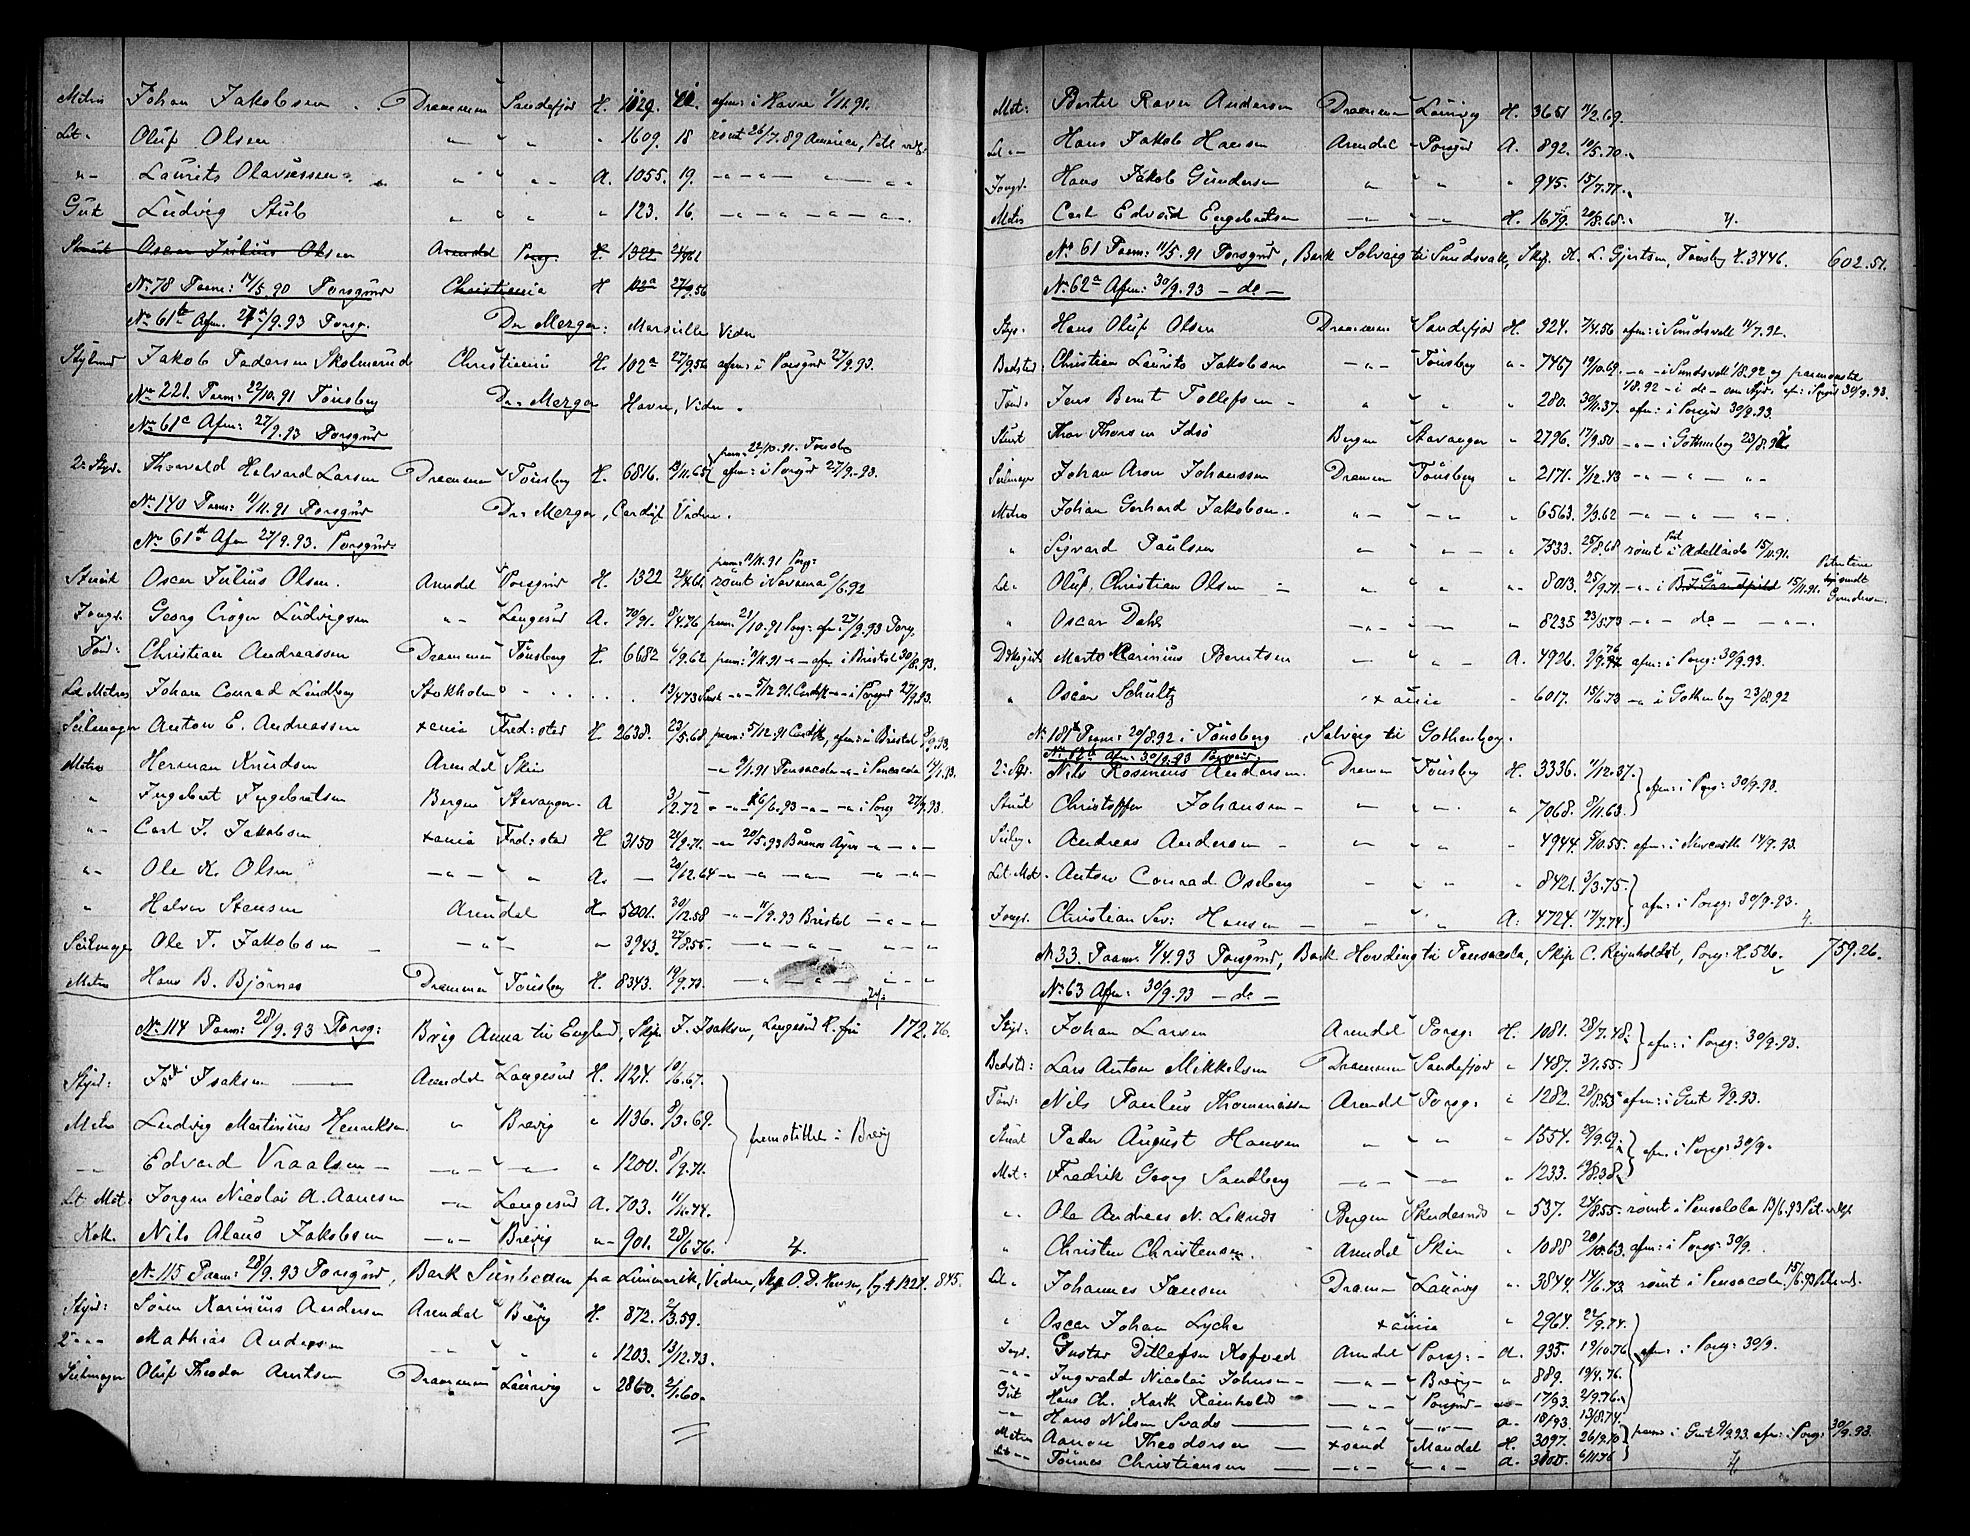 Matros Johan Jakobsen Drammen Sandefjord H. 1129. afm: i Havre 1/11.91.
Let. Oluf Olsen " " " 1609. 18 rømt 26/7.89 America,
" Laurits Olaviessen " " A. 1055. 19.
Gut Ludvig Stub " " " 123. 16.
Stuert Oscar Julius Olsen Arendal Porsg. H. 1322
No 78 Paam: 14/5.90 Porsgrund Christiania H 102a 27/9.56
No 61b Afm. 27/9.93 Porsg. Dr. Mezger: Marseille Videre
Styrmd Jakob Pedersen Skolmerud Christiania H. 102a 27/9.56 afm: i Porsgrd 27/9.93.
No 221. Paam: 22/10.91 Tønsberg Dr. Mezger Havre, Videre.
No 61c Afm: 27/9.93 Porsgrund
2. Styr. Thorvald Halvard Larsen Drammen Tønsberg H. 6816. 13/11.65 paam: 22/10.91. Tønsb afm: i Porsgrd 27/9.93.
No 140 Paam: 11/11.91 Porsgrund Dr. Mezger, Cardif Videre.
No 61d Afm 27/9.93. Porsgrund
Stuert Oscar Julius Olsen. Arendal Porsgrund H. 1322 paam: 11/11.91 Porsg: rømt i Savanna 9/6.92
Jungm. Georg Crøger Ludvigsen " Langesund A. 70/91. 8/4.76 paam: 21/10.91 Porsg: afm: 27/9.93 Porsg.
Tøm: Christian Andreassen Drammen Tønsberg H. 6682 6/9.62 paam: 11/11.91 afm: i Bristol 30/8.93.
Let Matros Johan Conrad Lindberg Stokholm 13/4.73 5/12.91. Cardif i Porsgrd 27/9.93.
Seilmager Anton E. Andreassen xania Fred:stad H 2638. 23/5.68 paam: 5/12.91 Cardif, afm: i Bristol 8/9.93.
Matros Herman Knudsen Arendal Skien 9/1.91 Pensacola i Pensacola 14/1.93.
" Ingebret Ingebretsen Bergen Stavanger. A 3/12.72 16/6.93 i Porsg 27/9.93.
" Carl J. Jakobsen xania Fred:stad H 3150 21/9.71. 20/5.93 Buenos Ayres
" Ole K. Olsen A. 20/12.64
" Halvor Stensen Arendal H 5001. 30/12.58 11/9.93 Bristol
Seilmager Ole T. Jakobsen " 3943. 27/8.55.
Matros Hans B. Bjørnes Drammen Tønsberg H. 8343. 19/9.73.
No 114 Paam: 28/9.93 Porsg: Brig Anna til England, Skip. J. Isaksen, Langesund 172.76.
Styrd: Isak Isaksen Arendal Langesund H. 1124. 10/6.67.
Matro Ludvig Martinius Henriksen " Brevig " 1136. 8/3.69. fremstillet i Brevig
" Edvard Vraalsen " 1200. 8/9.71.
Let Mat: Jørgen Nicolai A. Aanesen Langesund A. 703. 11/11.74.
Kok. Nils Alaus Jakobsen Brevig " 901. 28/6.76. 4.
No 115 Paam: 28/9.93 Porsgrund, Bark Sunbeam fra Limmerik, Videre, Skip O. P. Hansen, H 1224. 845.
Styrd: Søren Karinius Andersen Arendal Brevig H. 872. 2/3.59.
2. " Mathias Andersen " " 1203. 13/12.73.
Seilmager Oluf Theodor Arntsen Drammen Laurvig " 2860. 2/1.60.
Mat: Bertel Raven Andersen Drammen Laurvig H. 3651 11/2.69.
Let. Hans Jakob Hansen Arendal Porsgrd A. 892. 10/5.70.
Jungm. Hans Jakob Gundersen " " " 945. 15/7.71.
Matro Carl Edvard Engebretsen H. 1679. 20/8.68. 4.
No 61 Paam: 11/5.91 Porsgrund, Bark Solveig til Sundsvall, Skip. H. L. Gjertsen, Tønsberg H. 3446. 602.51.
No 62a Afm: 30/9.93 - do -
Styr. Hans Oluf Olsen Drammen Sandefjord H. 924. 7/4.56 afm: i Sundsvall 11/7.92.
Baadsm: Christian Laurits Jakobsen Tønsberg " 7467 19/10.69. i Sundsvall 1/8.92 og paamønstr 1/8.92 i do som Styr. afm: i Porsgrd 30/9.93.
Tømm. Jens Bernt Tollefsen " " " 280. 30/11.37. afm: i Porsgrd 30/9.93.
Stuert Thor Thorsen Idsø Bergen Stavanger " 2796. 17/9.50 i Gothenborg 23/8.92
Seilmager Johan Aron Johanssen Drammen Tønsberg " 2171. 4/12.43
Matros Johan Gerhard Jakobsen " 6563. 9/3.62
" Sigvard Paulsen " 7533. 25/8.68 rømt i Port Adellaide 15/11.91.
Let. Oluf Christian Olsen " 8013. 25/9.71. 15/11.91.
" Oscar Dahl 8235 23/5.73 do
Dæksgut Marto Marinius Berntsen A. 4926. afm: i Porsg: 30/9.93.
" Oscar Schultz xania " 6017. 15/1.73 i Gothenborg 23/8.92
No 181b Paam: 20/8.92 i Tønsberg, Solveig til Gothenborg.
No 62b Afm: 30/9.93 Porsgrd.
2. Styr. Nils Rasmus Andersen. Drammen Tønsberg H. 3336. 11/12.37. afm: i Porsg: 30/9.93.
Stuert Christoffer Johansen " " " 7068. 8/11.63.
Seilm. Andreas Andersen " 4944. 5/10.55. afm: i Newcastle 14/9.93.
Let Mat. Anton Conrad Oseberg " 8421. 3/3.75. afm: i Porsg: 30/9.93.
Jungm. Christian Sev: Hansen A: 4724. 17/7.74. 4.
No 33. Paam: 4/4.93 Porsgrund, Bark Høvding til Pensacola, Skip C. Reinholdt, Porsg: H. 526. 759.26.
No 63 Afm: 30/9.93 - do -
Styr: Johan Larsen Arendal Porsg: H. 1081. 28/7.48. afm: i Porsg: 30/9.93.
Baadsm: Lars Anton Mikkelsen Drammen Sandefjord " 1487. 3/1.55.
Tøm: Nils Paulus Thomassen Arendal Porsg: " 1282. 20/8.53 afm: i Grut 9/2.93.
Stuert Peder August Hansen " " " 1554. 29/9.69. afm: i Porsg: 30/9.
Mat: Fredrik Georg Sandberg " 1233. 19/8.38.
" Ole Andreas N. Leknes Bergen Skudesnes " 537. 24/8.55. rømt i Pensacola 13/6.93
" Christen Christensen. Arendal Skien " 1088 20/10.63. afm: i Porsg: 30/9.
Let. Johannes Jansen Drammen Laurvig " 3844. 14/6.73. rømt i Pensacola 15/6.93
" Oscar Johan Lyche xania " 2964. 22/9.74.
Jungm. Gustav Ditlefsen Kofoed Arendal Porsg: A. 935. 19/10.76 afm: i Porsg: 30/9.
" Ingvald Nicolai Johnsen Brevig " 889. 19/4.76.
Gut Hans Ch. Karth Reinholdt Porsgrd 17/93. 2/9.76.
" Hans Nilsen Svads A. 18/93 13/8.74.
Matros Aanon Theodorsen xsand Mandal H. 3097. 26/9.70 paam i Grut 9/2.93. afm: i Porsg: 30/9.93.
Let. Tønnes Christiansen A. 3100. 6/11.76 4